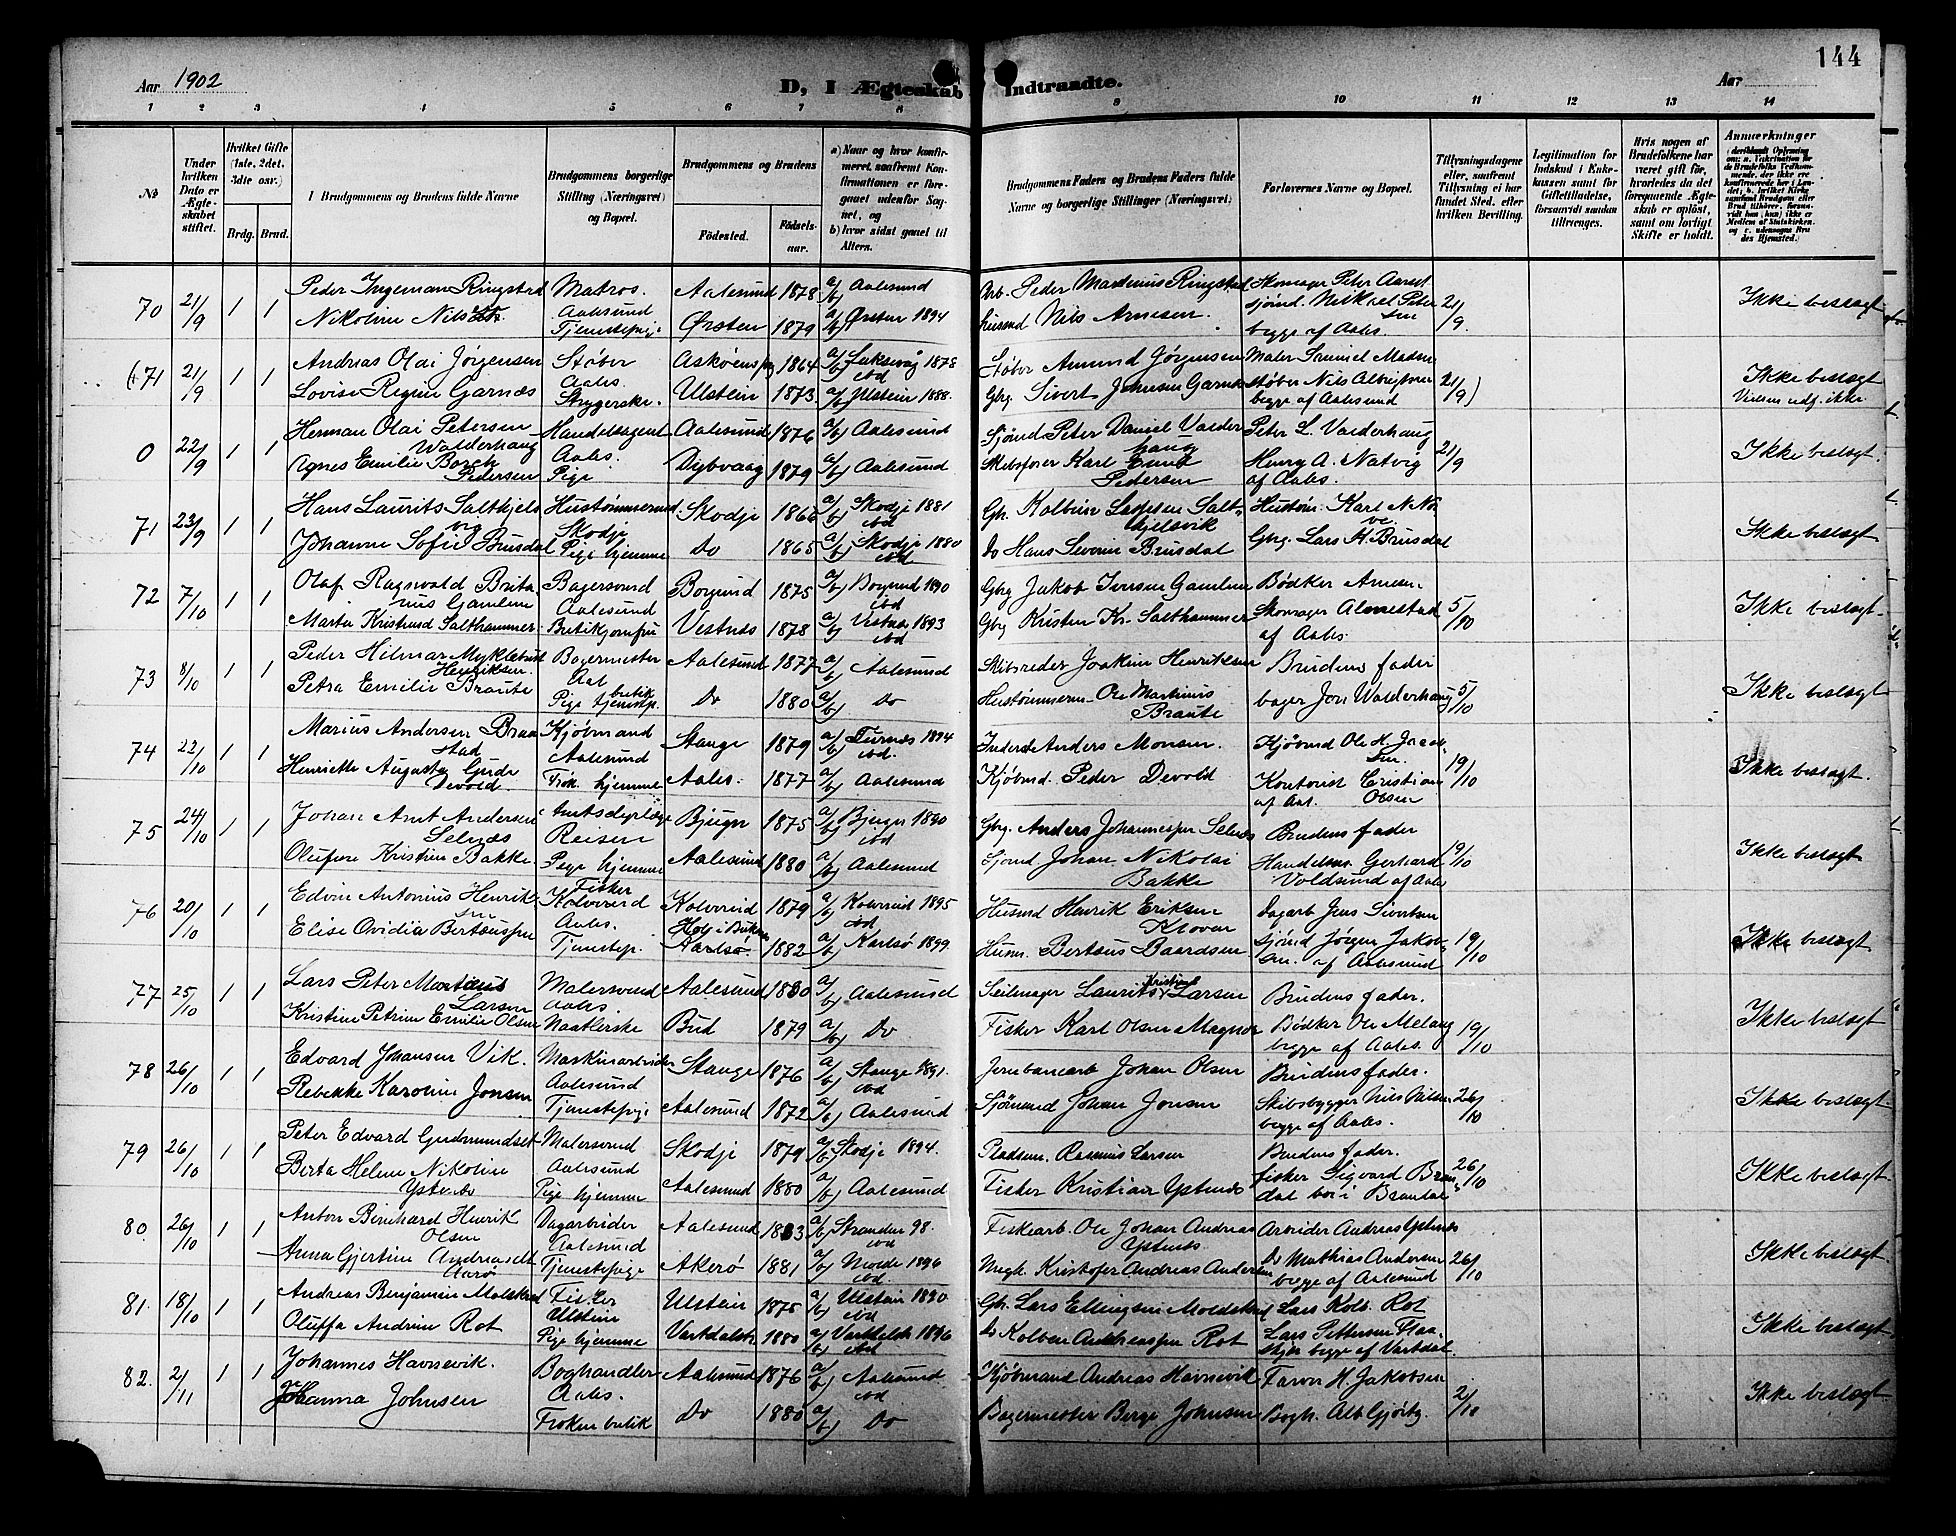 144
Aar 1902 D, I Ægteskab Indtraadte. Aar
1 2 3 4 5 6 7 8 9 10 11 12 13 14
No
Under hvilken Dato er Ægteskabet stiftet.
Hvilket Gifte (1ste, 2det, 3die osv.)
Brdg. Brud.
I Brudgommens og Brudens fulde Navne
Brudgommens borgerlige Stilling (Næringsvei) og Bopæl.
Brudgommens og Brudens
Fødested. Fødselsaar.
a) Naar og hvor konfirmeret, saafremt Konfirmationen er foregaaet udenfor Sognet, og
b) hvor sidst gaaet til Alters.
Brudgommens Faders og Brudens Faders fulde Navne og borgerlige Stillinger (Næringsvei)
Forlovernes Navne og Bopæl.
Tillysningsdagene eller, saafremt Tillysning ei har fundet Sted, efter hvilken Bevilling.
Legitimation for Indskud i Enkekassen samt for Giftetilladelse, forsaavidt saadan tiltrænges.
Hvis nogen af Brudefolkene har været gift før, hvorledes da det foregaaende Ægteskab er opløst, samt om lovligt Skifte er holdt.
Anmærkninger
70 21/9 1 1 Peder Ingeman Ringstad Matros. Aalesund 1878 a/b) Aalesund Arb. Peder Martinius Ringstad Skomager Peter Aarset
Nikoline Nilsdtr. Aalesund Tjenestepige Ørsten 1879 a/b) Ørsten 1894 Nils Arnesen. sjømd. Mikael Petersen begge af Aales. 21/9. Ikke beslægt
(71 21/9 1 1 Andreas Olai Jørgensen Støber Aales. 1864 a/b) Laksevåg 1878 ibd Støber Amund Jørgensen Maler Samuel Madsen
Lovise Regine Garnæs Strygerske. Ulstein 1873. a/b) Ulstein 1888. Gbrg. Sivert Johnsen Garnæs støber Nils begge af Aalesund 21/9) Ikke beslægt
0 22/9 1 1 Herman Olai Petersen Walderhaug Handelsagent Aales. Aalesund 1876 a/b) Aalesund Sjømd Peter Daniel Valderhaug Peter L. Valderhaug
Agnes Emilie Borch Pedersen Pige Dybvaag 1879 a/b) Aalesund Skibsfører Karl Pedersen Henry A. Natvig af Aales. 21/9 Ikke beslægt.
71 23/9 1 1 Hans Laurits Salthjelsvig Hustømmermd Skodje Skodje 1866 a/b) Skodje 1881 ibd Gb. Kolbein Salthjelsvik Hustøm. Karl N.
Johanne Sofie Brusdal Pige hjemme Do 1865 a/b) Skodje 1880 ibd Do Hans Severin Brusdal Gbrg. Lars H. Brusdal Ikke beslægt
72 7/10 1 1 Olaf Ragnvald Gamlem Bagersvend Aalesund Borgund 1875 a/b) Borgund 1890 ibd Gbrg Jakob Iversen Gamlem Bødker Arnesen
Marta Kristine Salthammer Butikjomfru Vestnes 1878 a/b) Vestnes 1893 ibd Gbrg Kristen Kr. Salthammer Skomager Almestad af Aales. 5/10 Ikke beslægt.
73 8/10 1 1 Peder Hilmar Myklebust Henriksen. Bagermester Aal Aalesund 1877 a/b) Aalesund Skibsreder Joakim Henriksen Brudens fader
Petra Emilie Braute Pige butik tjenestp. Do 1880 a/b) Do Hustømmerm. Ole Martinus Braute bager Jon Walderhaug 5/10 Ikke beslægt
74 22/10 1 1 Marius Andersen Braastad Kjøbmand Aalesund Stange 1879 a/b) 1894 ibd. Anders Monsen. Kjøbmd Ole H. Jacobsen
Henriette Augusta Gude Devold. Frøk. hjemme Aales. 1877 a/b) Aalesund Kjøbmd. Peder Devold Kontorist Cristian Olsen af Aal. 19/10 Ikke beslægt.
75 24/10 1 1 Johan Arnt Andersen Selnæs Reisen Bjugn 1875 a/b) Bjugn 1890 ibd Gbrg. Anders Johannessen Selnes Brudens fader
Olufine Kristine Bakke Pige hjemme Aalesund 1880 a/b) Aalesund Sjømd Johan Nikolai Bakke Handelsm. Gerhard Voldsund af Aales 19/10 Ikke beslægt
76 20/10 1 1 Edvin Antonius Henriksen Fisker Kolvereid Aales. Kolvereid 1879 a/b) Kolvereid 1895 ibd Husmd Henrik Eriksen Dagarb Jens Sivertsen
Elise Ovidia Berteussen Tjenestep. Karlsø 1882 a/b) Karlsø 1899. Husm. Berteus Baardsen sjømd Jørgen Jakobsen af Aalesund 19/10 Ikke beslægt
77 25/10 1 1 Lars Peter Martinus Larsen Malersvend Aales. Aalesund 1880 a/b) Aalesund Seilmager Laurits Kristian Larsen Brudens fader.
Kristine Petrine Emilie Olsen Bud 1879 a/b) Do Fisker Karl Olsen Magnor Bødker Ole Melang begge af Aales. 19/10 Ikke beslægt
78 26/10 1 1 Edvard Johansen Vik. Maskinarbeider Aalesund Stange 1876 a/b) Stange 1891. ibd Jernbanearb Johan Olsen Brudens fader.
Rebekke Karoline Jonsen Tjenestepige Aalesund 1872 a/b) Aalesund Sjømand Johan Jonsen Skibsbygger Nils Nilsen begge af Aales. 26/10 Ikke beslægt.
79 26/10 1 1 Peter Edvard Gudmundset Malersvend Aalesund Skodje 1879 a/b) Skodje 1894. Pladsm. Rasmus Larsen Brudens fader.
Berta Helene Nikoline Ystenes Pige hjemme Aalesund 1880 a/b) Aalesund Fisker Kristian Ystenes fisker Sigvard Brandal boi i Brandal 26/10 Ikke beslægt.
80. 26/10 1 1 Anton Bernhard Henrik Olsen Dagarbeider Aalesund Aalesund 1883 a/b) Stranden 98. ibd Fiskearb. Ole Johan Andreas Ystenes Arbeider Andreas Ystenes
Anna Gjertine Andreasdt Aarø Tjenestepige Akerø 1881 a/b) Molde 1896 ibd Kristofer Andreas Andersen Do Mathias Andersen begge af Aalesund 26/10 Ikke beslægt.
81. 18/10 1 1 Andreas Benjamin Molskred Fisker Ulstein Ulstein 1875 a/b) Ulstein 1890 ibd Gb. Lars Ellingsen Moldskred Lars Kolb. Rot
Oluffa Andrine Rot Pige hjemme Vartdalstr. 1880 a/b) Vartdalstr 1896 ibd Do Kolben Andreassen Rot Lars Pettersen begge af Vartdal. Ikke beslægt
82. 2/11 1 1 Johannes Havnevik. Boghandler Aales. Aalesund 1876 a/b) Aalesund ibd Kjøbmand Andreas Havnevik Farver H. Jakobsen
Johanna Johnsen Frøken butik Do 1880 a/b) Do Bagermester Berge Johnsen Bogh. Alb Gjørtz. 2/10 Ikke beslægt